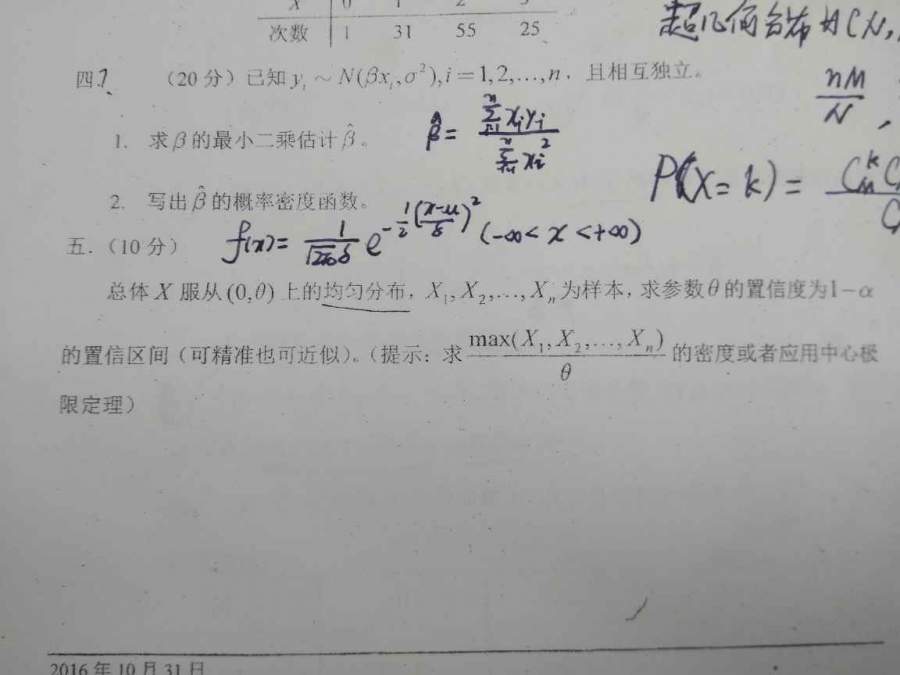 X 0 1 2 3
次数 1 31 55 25
超几何分布 MCN,
nM/N ,
四? (20 分) 已知 y_i ~ N(βx_i, σ²), i = 1,2,…,n，且相互独立。
1. 求 β 的最小二乘估计 β̂。
β̂ = \frac{\sum_{i=1}^{n} x_i y_i}{\sum_{i=1}^{n} x_i^2}
P(X=k) =
2. 写出 β̂ 的概率密度函数。
f(x) = \frac{1}{\sqrt{2π}δ} e^{-\frac{1}{2}(\frac{x-u}{δ})^2} (-∞ < x < +∞)
五. (10 分)
总体 X 服从 (0,θ) 上的均匀分布，X₁, X₂,…, Xₙ 为样本，求参数 θ 的置信度为 1−α
的置信区间（可精准也可近似）。（提示：求 \frac{max(X₁, X₂,…, Xₙ)}{θ} 的密度或者应用中心极
限定理）
2016 年 10 月 31 日